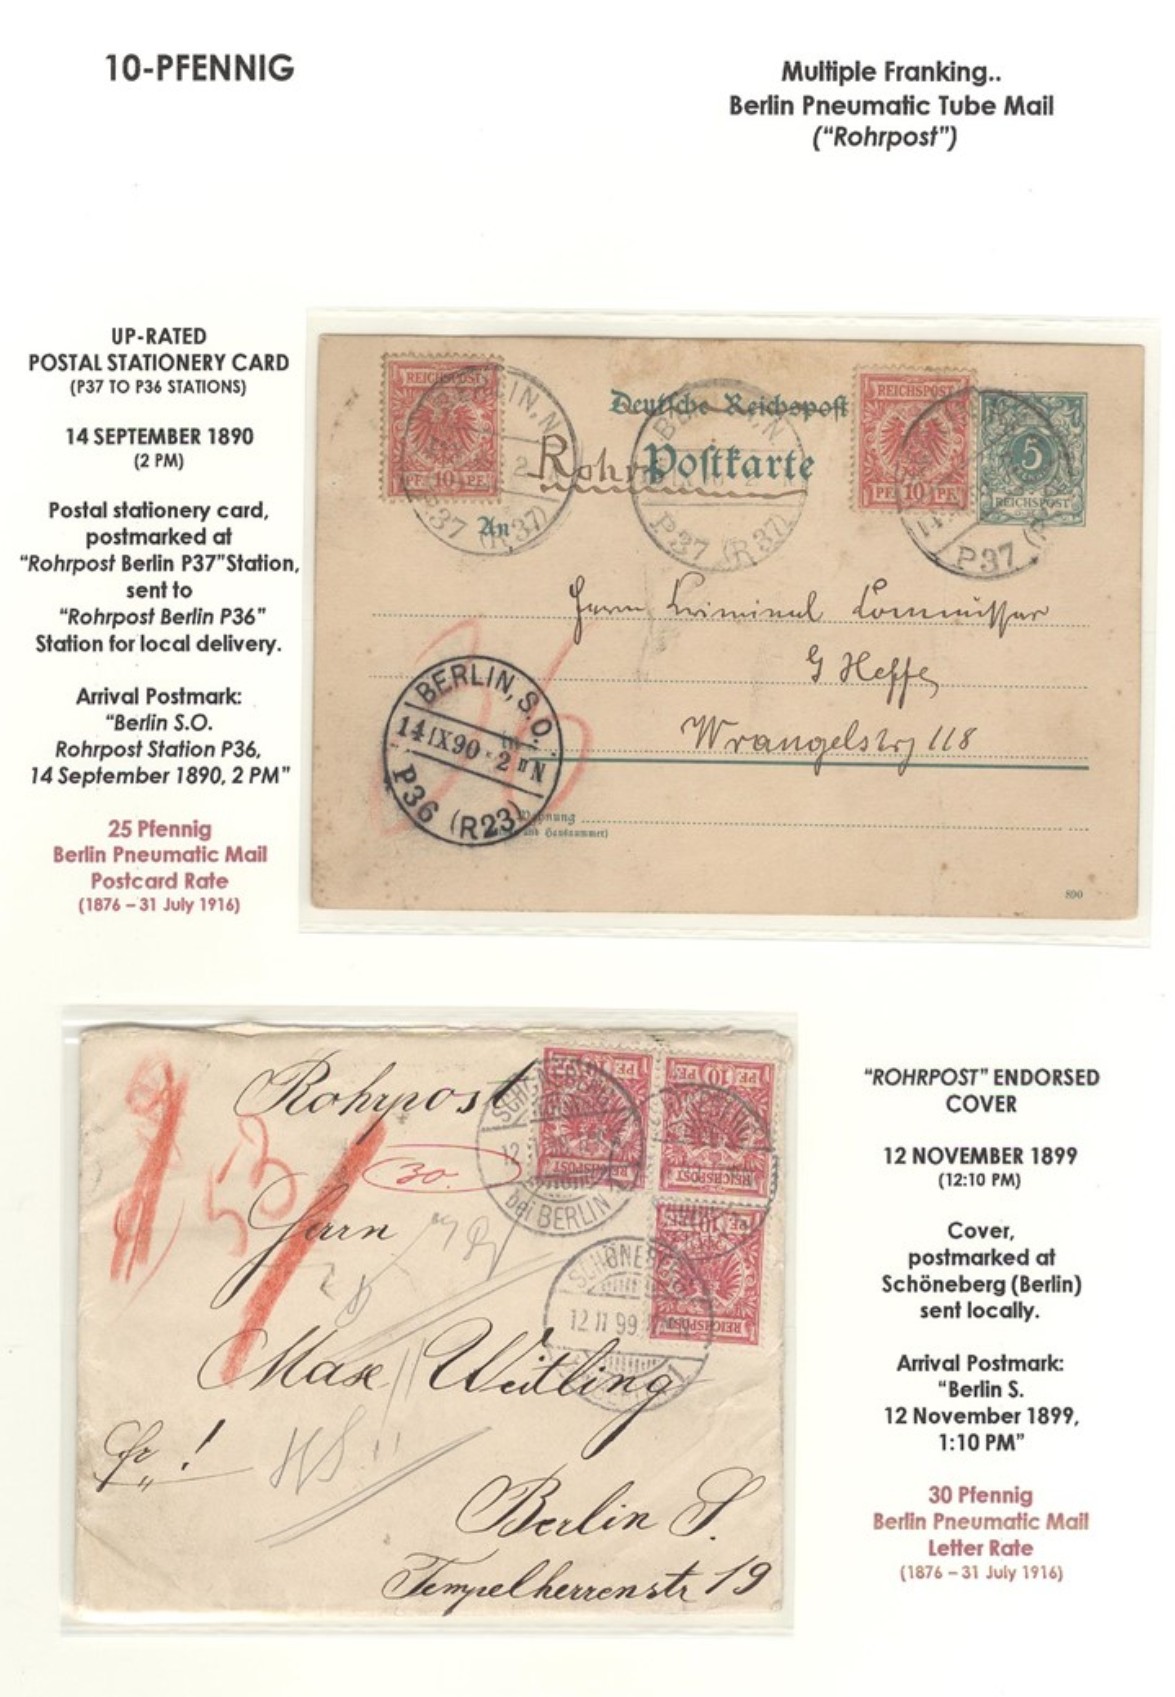 10-PFENNIG
Multiple Franking..
Berlin Pneumatic Tube Mail
("Rohrpost")
UP-RATED
POSTAL STATIONERY CARD
(P37 TO P36 STATIONS)
14 SEPTEMBER 1890
(2 PM)
Postal stationery card,
postmarked at
"Rohrpost Berlin P37"Station,
sent to
"Rohrpost Berlin P36"
Station for local delivery.
Arrival Postmark:
"Berlin S.O.
Rohrpost Station P36,
14 September 1890, 2 PM"
25 Pfennig
Berlin Pneumatic Mail
Postcard Rate
(1876 – 31 July 1916)
REICHSPOST
PF. 10 PF.
BERLIN, N
P37 (R37)
Deutsche Reichspost
Rohr Postkarte
An
BERLIN, N
P37 (R37)
REICHSPOST
PF. 10 PF.
5
REICHSPOST
P37
Herrn Criminal Commissar
G Heffe
Wrangelstr 118
BERLIN, S.O.
14 IX 90 2 N
P36 (R23)
Wohnung
und Hausnummer)
890
Rohrpost
30.
Herrn
Max Weitling
Berlin S.
Tempelherrenstr 19
10 PF.
REICHSPOST
10 PF.
REICHSPOST
10 PF.
REICHSPOST
SCHÖNEBERG
12
bei BERLIN
SCHÖNEBERG
12 11 99
"ROHRPOST" ENDORSED
COVER
12 NOVEMBER 1899
(12:10 PM)
Cover,
postmarked at
Schöneberg (Berlin)
sent locally.
Arrival Postmark:
"Berlin S.
12 November 1899,
1:10 PM"
30 Pfennig
Berlin Pneumatic Mail
Letter Rate
(1876 – 31 July 1916)